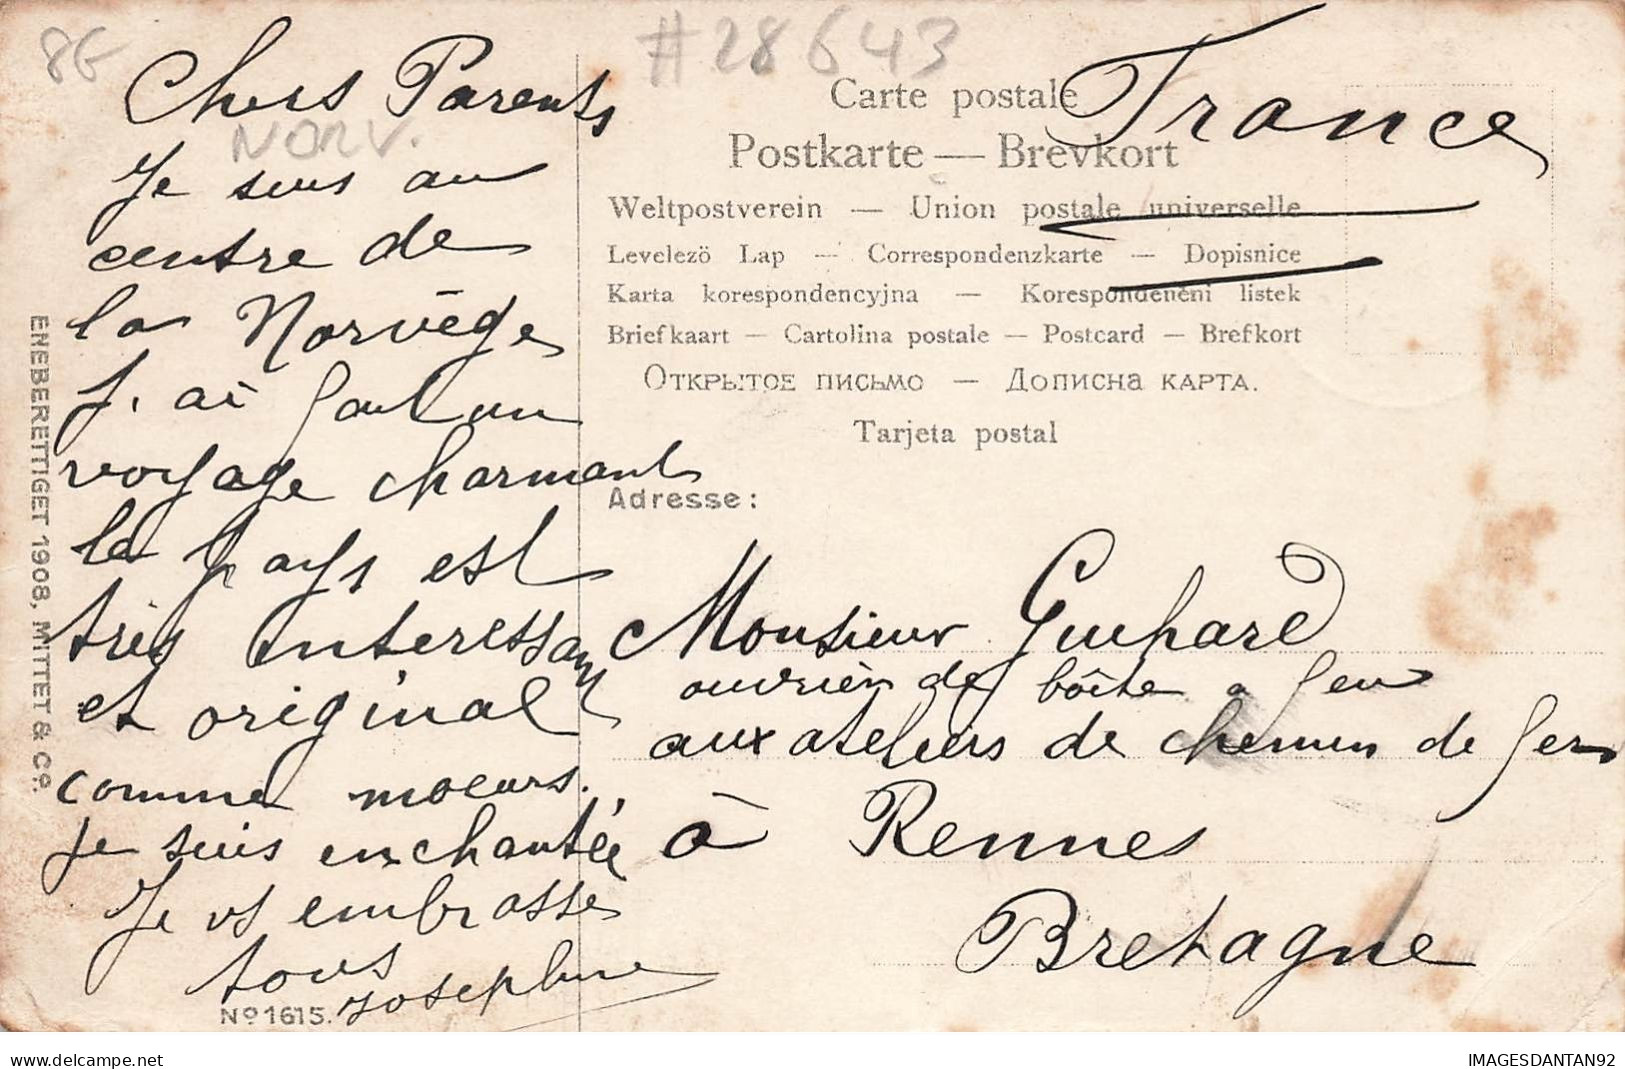 8E
#28643
NORV.
Chers Parents
Je suis au
centre de
la Norvège
J. ai fait un
voyage charmant
le pays est
très interessant
et original
comme moeurs.
je suis enchantée
Je vs embrasse
tous
Josephine
ENEBERETTIGET 1908, MITTET & Co.
No 1615.
France
Carte postale
Postkarte — Brevkort
Weltpostverein — Union postale universelle
Levelezö Lap — Correspondenzkarte — Dopisnice
Karta korespondencyjna — Korespondenčni listek
Briefkaart — Cartolina postale — Postcard — Brefkort
Открытое письмо — Дописна карта.
Tarjeta postal
Adresse:
Monsieur Guihard
ouvrier de boîte a feu
aux ateliers de chemin de fer
à Rennes
Bretagne
www.delcampe.net
IMAGESDANTAN92